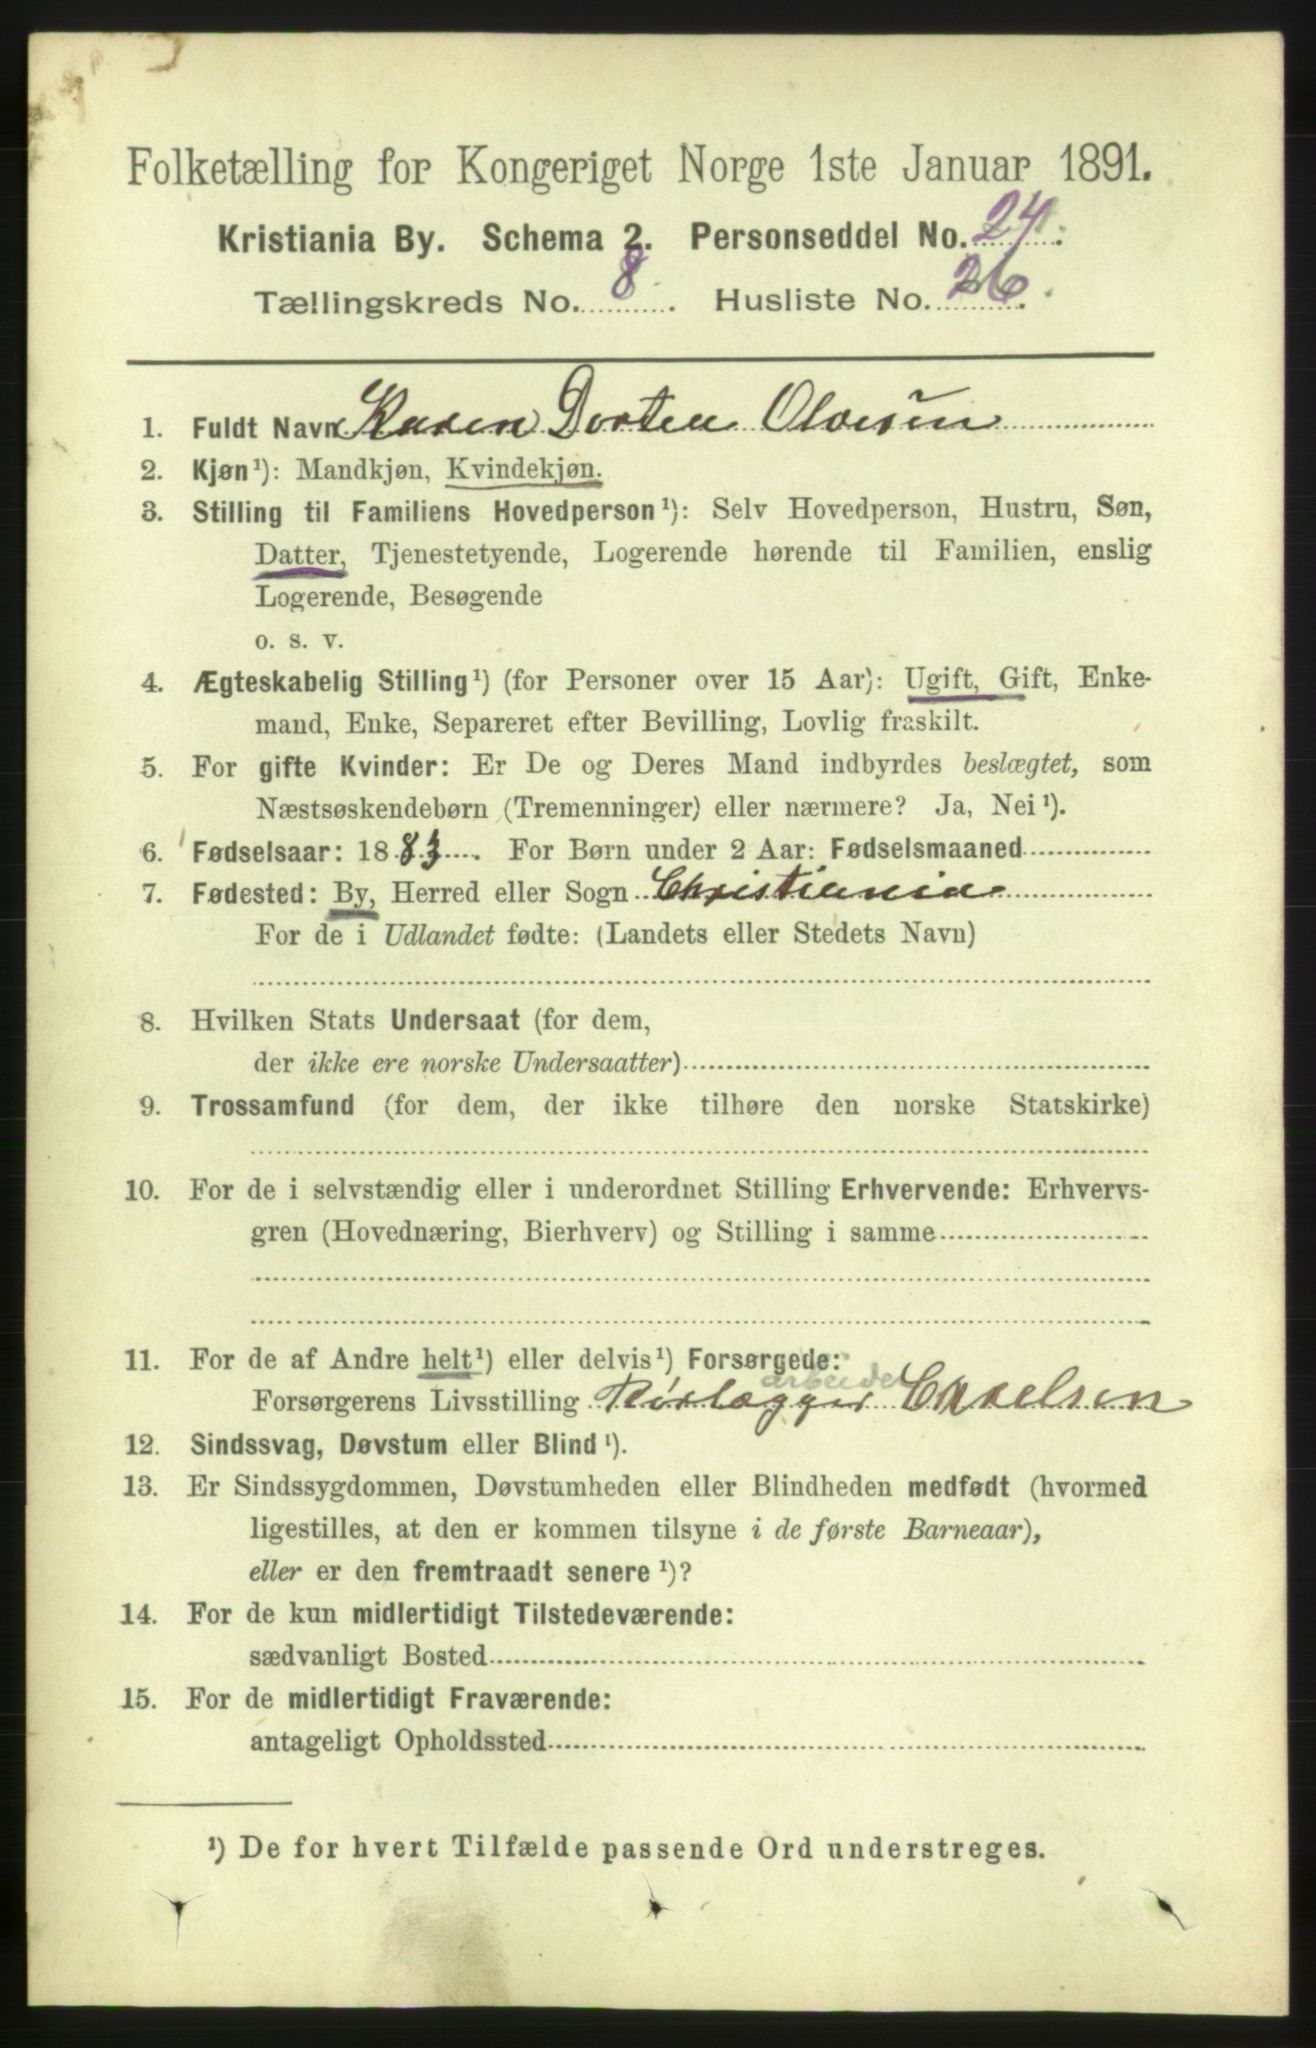 Folketælling for Kongeriget Norge 1ste Januar 1891.
Kristiania By. Schema 2. Personseddel No. 24.
Tællingskreds No. 8. Husliste No. 26.
1. Fuldt Navn Karen Dorten Olvesen
2. Kjøn¹): Mandkjøn, Kvindekjøn.
3. Stilling til Familiens Hovedperson¹): Selv Hovedperson, Hustru, Søn,
Datter, Tjenestetyende, Logerende hørende til Familien, enslig
Logerende, Besøgende
o. s. v.
4. Ægteskabelig Stilling¹) (for Personer over 15 Aar): Ugift, Gift, Enke-
mand, Enke, Separeret efter Bevilling, Lovlig fraskilt.
5. For gifte Kvinder: Er De og Deres Mand indbyrdes beslægtet, som
Næstsøskendebørn (Tremenninger) eller nærmere? Ja, Nei¹).
6. Fødselsaar: 1883. For Børn under 2 Aar: Fødselsmaaned
7. Fødested: By, Herred eller Sogn Christiania
For de i Udlandet fødte: (Landets eller Stedets Navn)
8. Hvilken Stats Undersaat (for dem,
der ikke ere norske Undersaatter)
9. Trossamfund (for dem, der ikke tilhøre den norske Statskirke)
10. For de i selvstændig eller i underordnet Stilling Erhvervende: Erhvervs-
gren (Hovednæring, Bierhverv) og Stilling i samme
11. For de af Andre helt¹) eller delvis¹) Forsørgede:
arbeider
Forsørgerens Livsstilling Rørlægger
12. Sindssvag, Døvstum eller Blind¹).
13. Er Sindssygdommen, Døvstumheden eller Blindheden medfødt (hvormed
ligestilles, at den er kommen tilsyne i de første Barneaar),
eller er den fremtraadt senere¹)?
14. For de kun midlertidigt Tilstedeværende:
sædvanligt Bosted
15. For de midlertidigt Fraværende:
antageligt Opholdssted
¹) De for hvert Tilfælde passende Ord understreges.